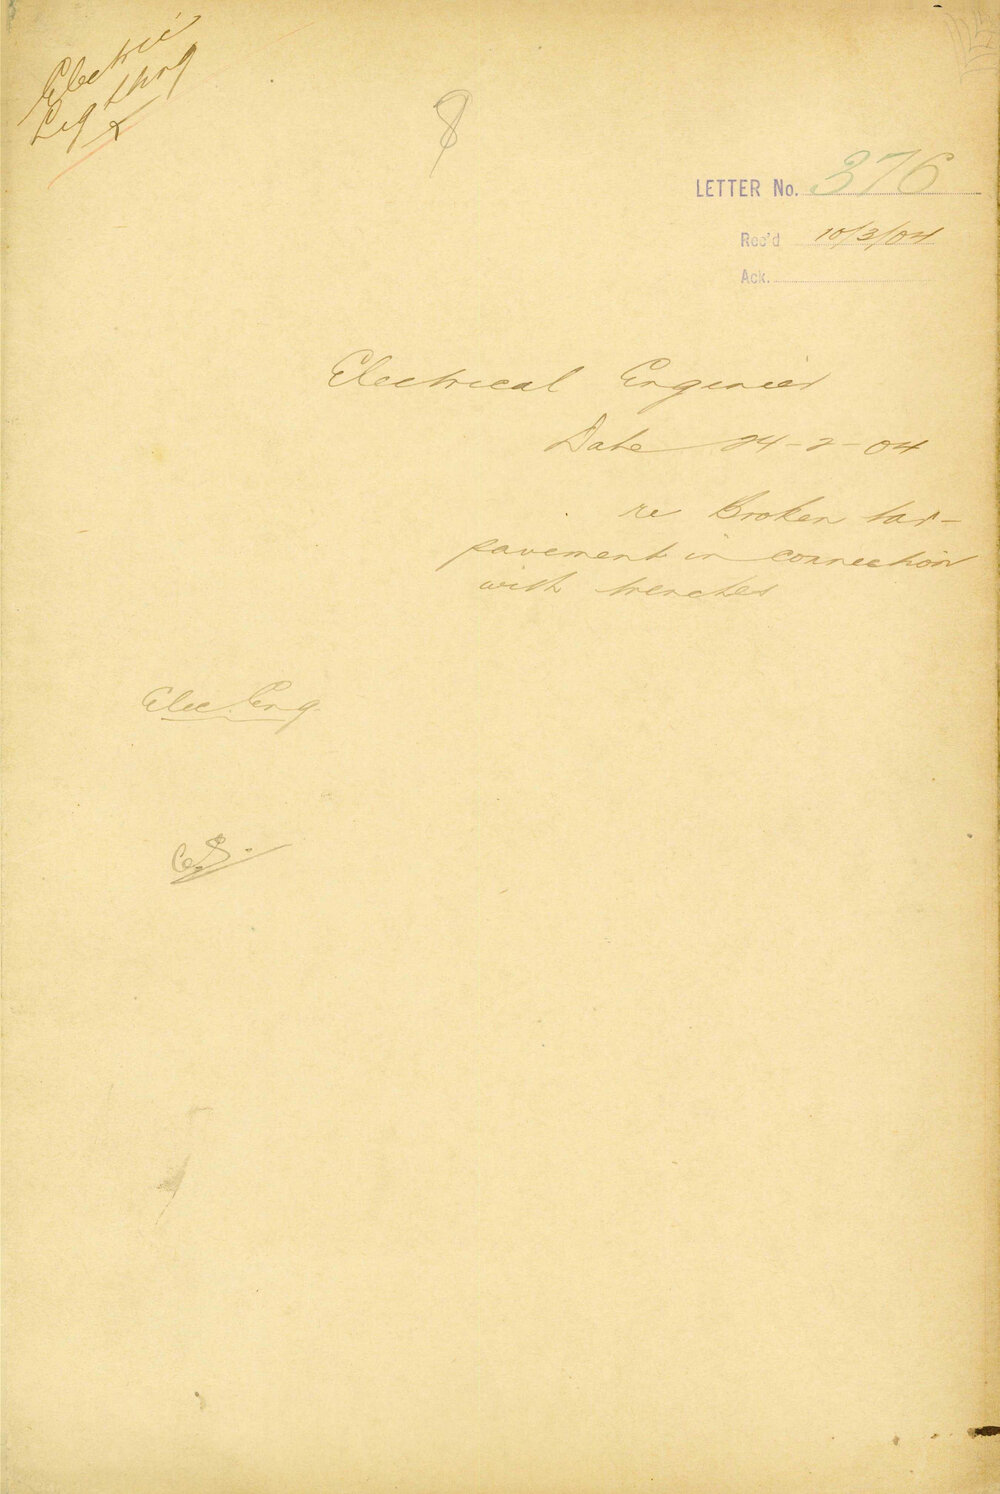 Electric
Lighting
8
LETTER No. 376
Rec'd 10/3/04
Ack.
Electrical Engineer
Date 24-2-04
re Broken tar-
pavement in connection
with trenches
Elec. Eng.